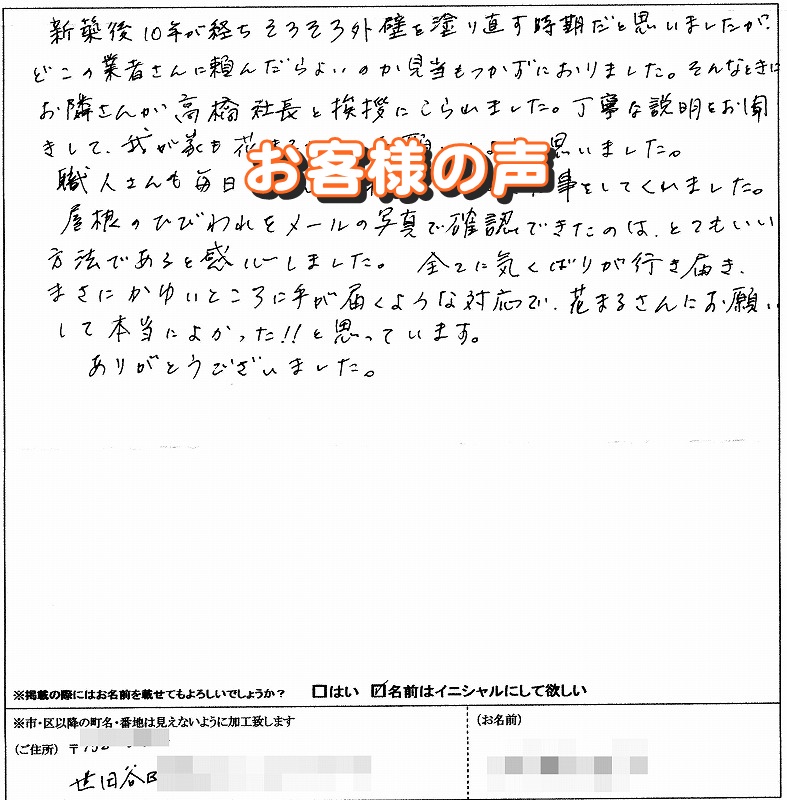 新築後10年が経ちそろそろ外壁を塗り直す時期だと思いましたが、
どこの業者さんに頼んだらよいのか見当もつかずにおりました。そんなときに
お隣さんが高橋社長と挨拶にこられました。丁寧な説明をお聞
きして、我が家も花まる 思いました。
お客様の声
職人さんも毎日 事をしてくれました。
屋根のひびわれをメールの写真で確認できたのは、とてもいい
方法であると感心しました。 全てに気くばりが行き届き、
まさにかゆいところに手が届くような対応で、花まるさんにお願い
して本当によかった!!と思っています。
ありがとうございました。
※掲載の際にはお名前を載せてもよろしいでしょうか? □はい ☑名前はイニシャルにして欲しい
※市・区以降の町名・番地は見えないように加工致します
(お名前)
(ご住所) 〒
世田谷